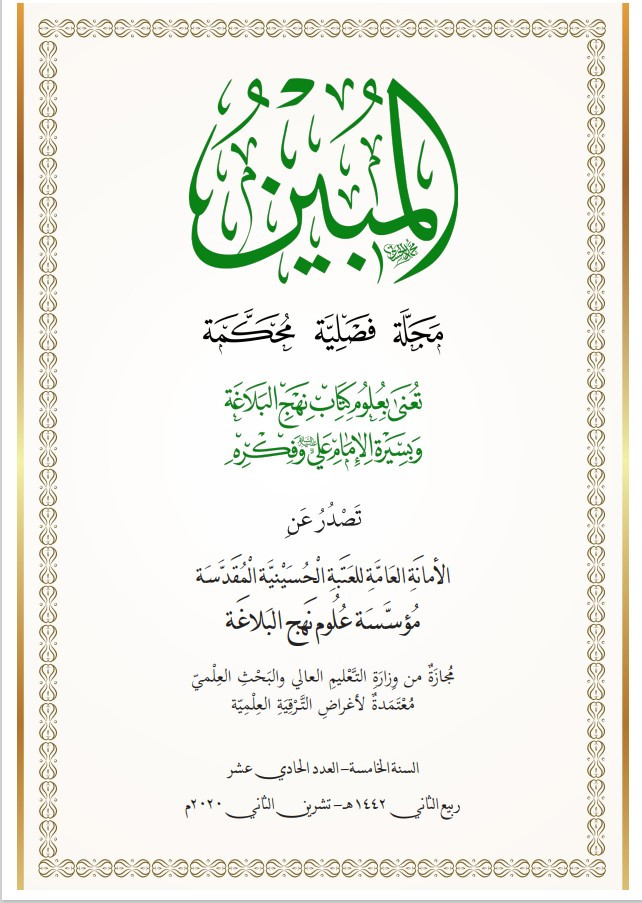 المُبِين
مَجَلَّة فَصْلِيَّة مُحَكَّمَة
تُعْنَى بِعُلُومِ كِتَابِ نَهْجِ البَلَاغَة
وَبِسِيْرَةِ الإِمَامِ عَلِيٍّ وَفِكْرِهِ
تَصْدُرُ عَنِ
الأمانَةِ العَامَّةِ للعَتَبةِ الْحُسَيْنِيَّةِ الْمُقَدَّسَة
مُؤسَّسَة عُلُوم نَهج البَلاغَة
مُجازَةٌ من وِزارَةِ التَّعْليمِ العالي والبَحْثِ العِلْميّ
مُعْتَمَدةٌ لأغراضِ التَّرْقِيَةِ العِلْمِيّة
السنة الخامسة – العدد الحادي عشر
ربيع الثاني ١٤٤٢هـ – تشرين الثاني ٢٠٢٠م